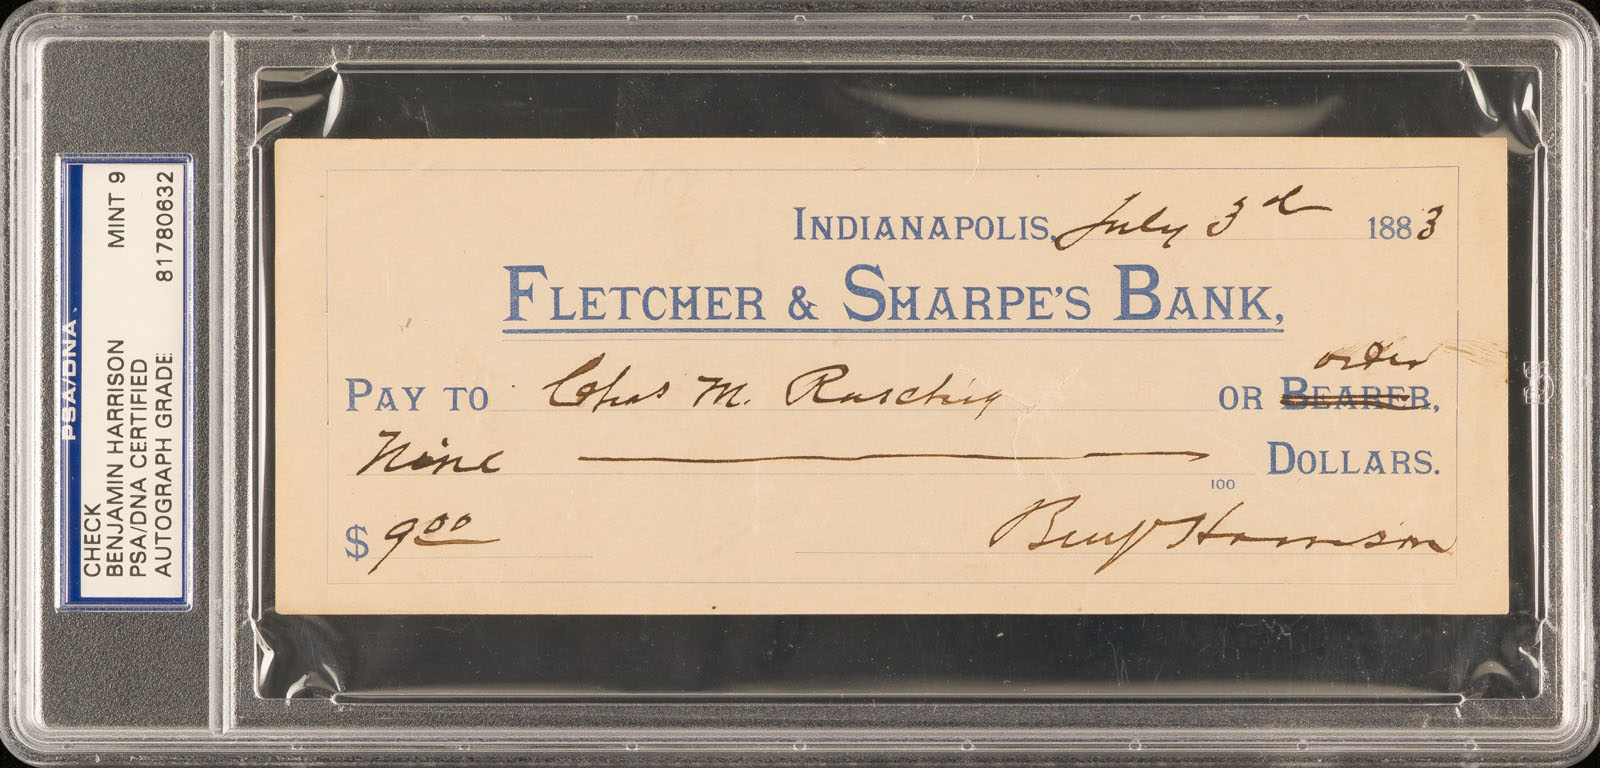 PSA/DNA
CHECK MINT 9
BENJAMIN HARRISON
PSA/DNA CERTIFIED
AUTOGRAPH GRADE 81780632
INDIANAPOLIS, July 3d 1883
FLETCHER & SHARPE'S BANK,
order
PAY TO Chas M. Raschig OR BEARER,
Nine DOLLARS.
100
$ 9.00 Benj Harrison